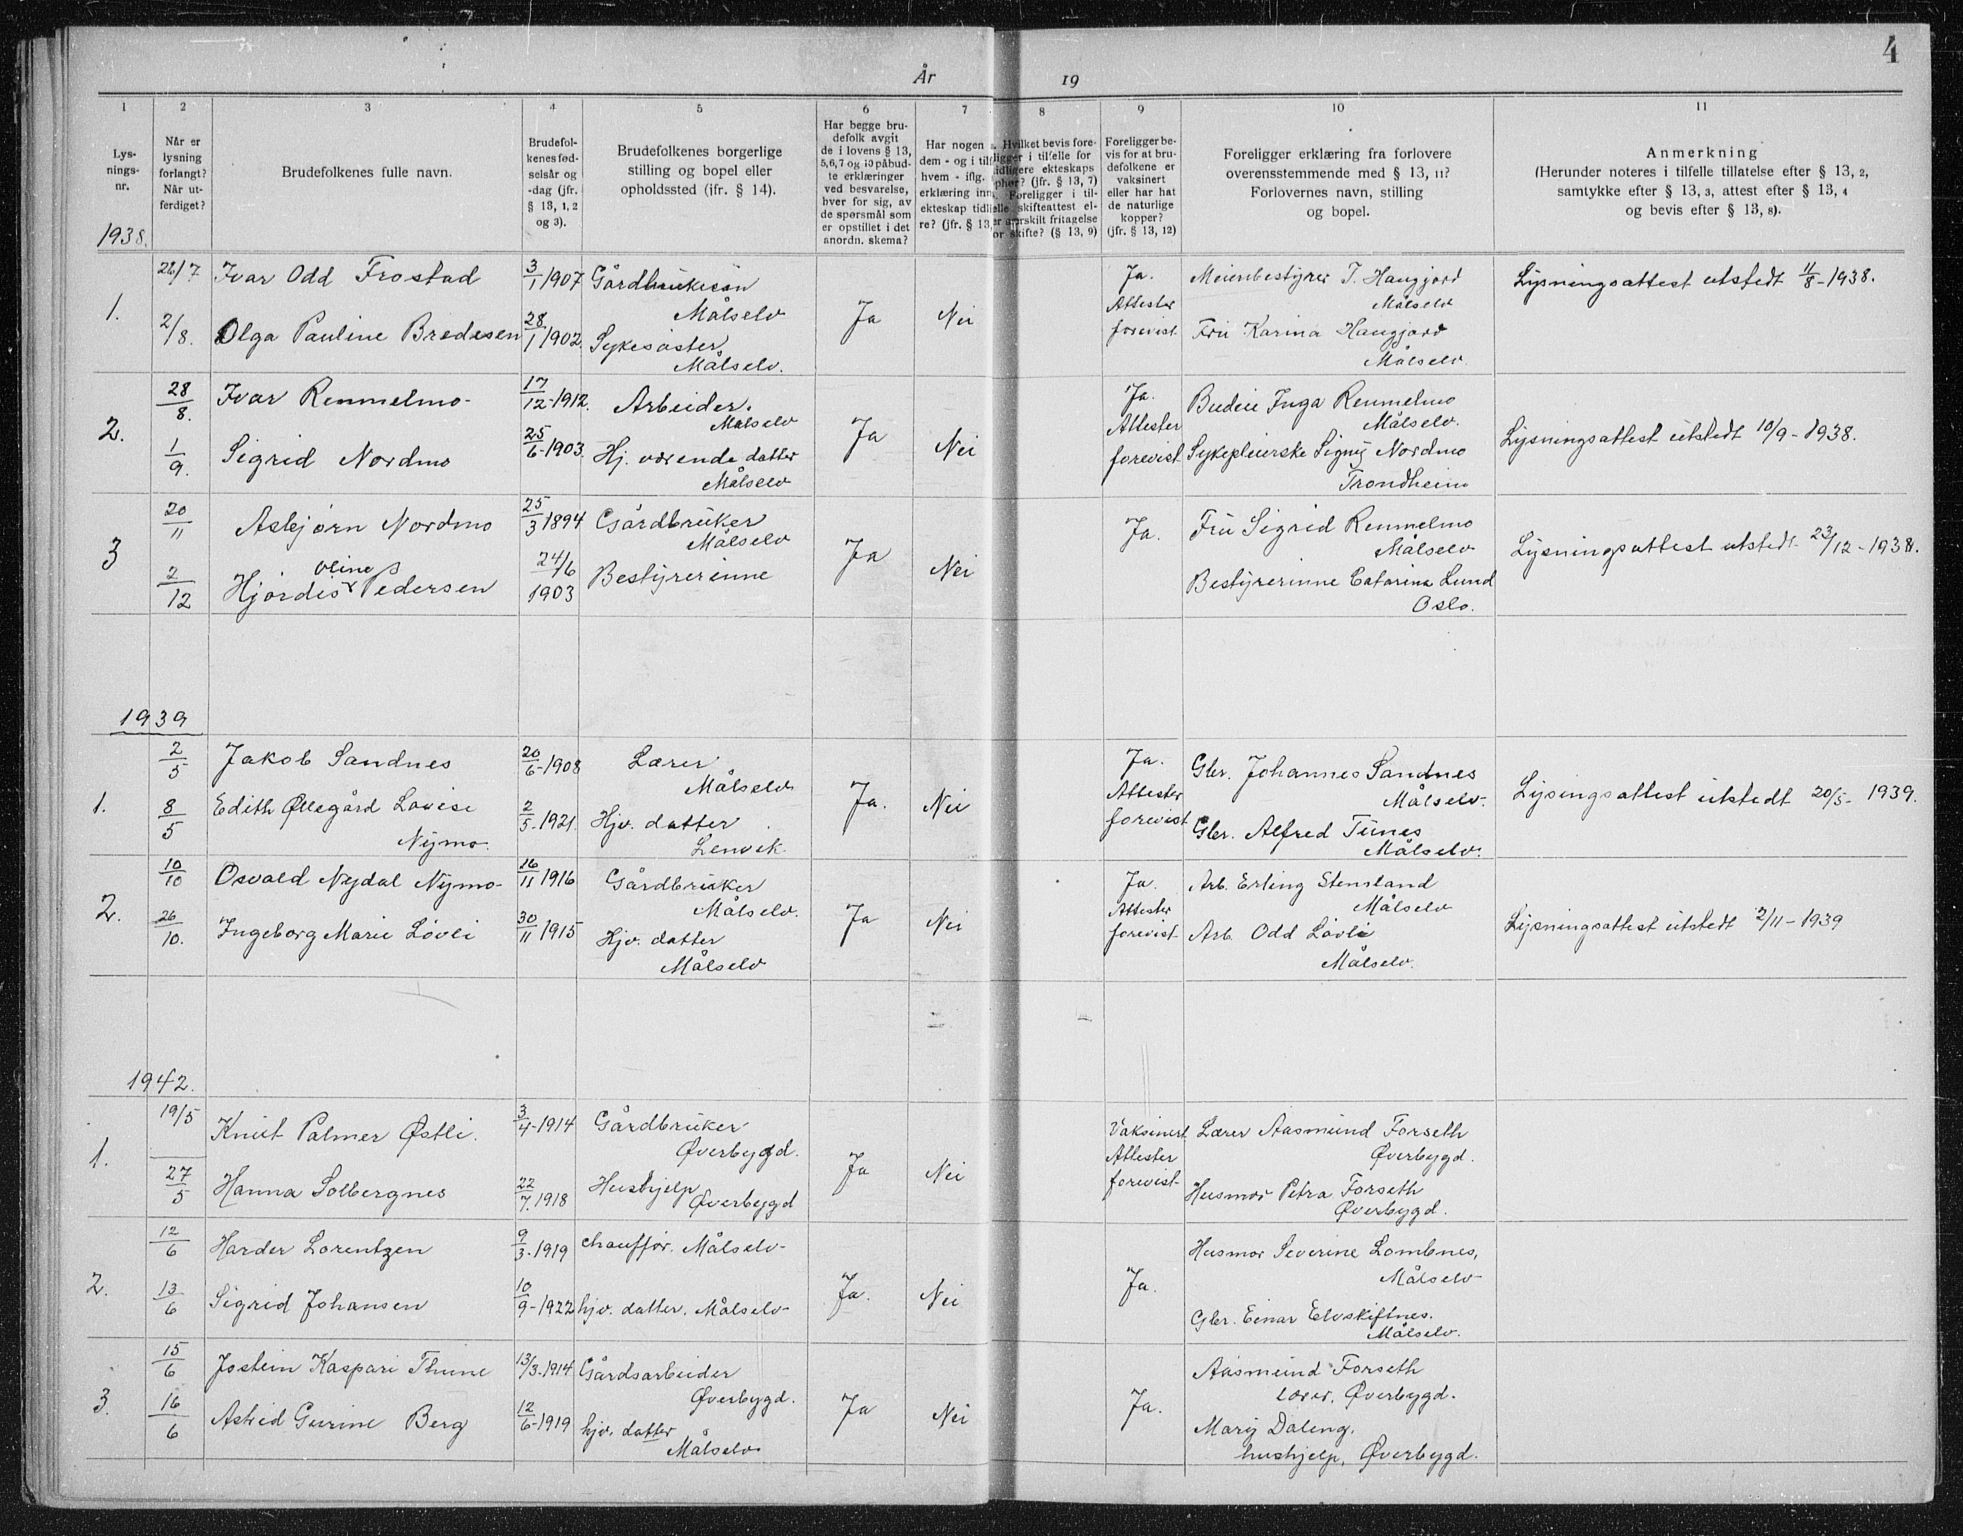 4
År 19
1 2 3 4 5 6 7 8 9 10 11
Lys-
nings-
nr.
Når er
lysning
forlangt?
Når ut-
ferdiget?
Brudefolkenes fulle navn.
Brudefol-
kenes fød-
selsår og
-dag (jfr.
§ 13, 1, 2
og 3).
Brudefolkenes borgerlige
stilling og bopel eller
opholdssted (jfr. § 14).
Har begge bru-
defolk avgit
de i lovens § 13,
5,6,7 og 10 påbud-
te erklæringer
ved besvarelse,
hver for sig, av
de spørsmål som
er opstillet i det
anordn. skema?
Har nogen a
dem - og i tilf
hvem - iflg.
erklæring inn
ekteskap tidl
re? (jfr. § 13,
Hvilket bevis fore-
ligger i tilfelle for
tidligere ekteskaps
ophør? (jfr. § 13, 7)
Foreligger i til-
felle skifteattest el-
ler særskilt fritagelse
for skifte? (§ 13, 9)
Foreligger be-
vis for at bru-
defolkene er
vaksinert
eller har hat
de naturlige
kopper?
(jfr. § 13, 12)
Foreligger erklæring fra forlovere
overensstemmende med § 13, 11?
Forlovernes navn, stilling
og bopel.
Anmerkning
(Herunder noteres i tilfelle tillatelse efter § 13, 2,
samtykke efter § 13, 3, attest efter § 13, 4
og bevis efter § 13, 8).
1938.
1. 26/7 Ivar Odd Frostad 3/1 1907 Gårdbrukersøn
Målselv
2/8. Olga Pauline Bredesen 28/1 1902. Sykesøster
Målselv.
Ja Nei
Ja.
Attester
forevist
Meieribestyrer T. Haugjord
Målselv
Fru Karina Haugjord
Målselv.
Lysningsattest utstedt 11/8-1938.
2. 28/8. Ivar Rennelmo 17/12-1912. Arbeider.
Målselv
1/9. Sigrid Nordmo 25/6-1903. Hj. værende datter
Målselv
Ja Nei
Ja.
Attester
forevist
Budeie Inga Rennelmo
Målselv.
Sykepleierske Signy Nordmo
Trondheim
Lysningsattest utstedt 10/9-1938.
3 20/11 Asbjørn Nordmo 25/3 1894 Gårdbruker
Målselv
2/12 Hjørdis Oline Pedersen 24/6 1903 Bestyrerinne
Ja Nei
Ja.
Fru Sigrid Rennelmo
Målselv
Bestyrerinne Catarina Lund
Oslo.
Lysningsattest utstedt 23/12-1938.
1939
1. 2/5 Jakob Sandnes 20/6-1908 Lærer
Målselv
8/5 Edith Øllegård Lovise
Nymo. 2/5-1921. Hjv. datter
Lenvik
Ja. Nei
Ja.
Attester
forevist
Gbr. Johannes Sandnes
Målselv.
Gbr. Alfred Tunes
Målselv.
Lysingsattest utstedt 20/5-1939.
2. 10/10 Osvald Nydal Nymo 16/11 1916 Gårdbruker
Målselv.
26/10. Ingeborg Marie Løvli 30/11 1915 Hjv. datter
Målselv
Ja Nei
Ja.
Attester
forevist
Arb. Erling Stensland
Målselv
Arb. Odd Løvli
Målselv.
Lysningsattest utstedt 2/11-1939
1942.
1. 19/5 Knut Palmer Østli. 3/4-1914 Gårdbruker
Øverbygd.
27/5 Hanna Solbergnes 22/7.1918 Hushjelp
Øverbygd
Ja Nei
Vaksinert
Attester
forevist
Lærer Aasmund Forseth
Øverbygd.
Husmor Petra Forseth
Øverbygd.
2. 12/6 Harder Lorentzen 9/3-1919 chauffør. Målselv
13/6 Sigrid Johansen 10/9-1922 hjv. datter. Målselv
Ja. Nei
Ja.
Husmor Severine Lombnes,
Målselv
Gbr. Einar Elvskiftnes.
Målselv.
3. 15/6 Jostein Kaspari Thune 13/3-1914 Gårdsarbeider
Øverbygd.
16/6 Astrid Gurine Berg 12/6-1919 hjv. datter
Målselv.
Ja Nei
Ja.
Aasmund Forseth
lærer, Øverbygd.
Mary Daling.
hushjelp, Øverbygd.